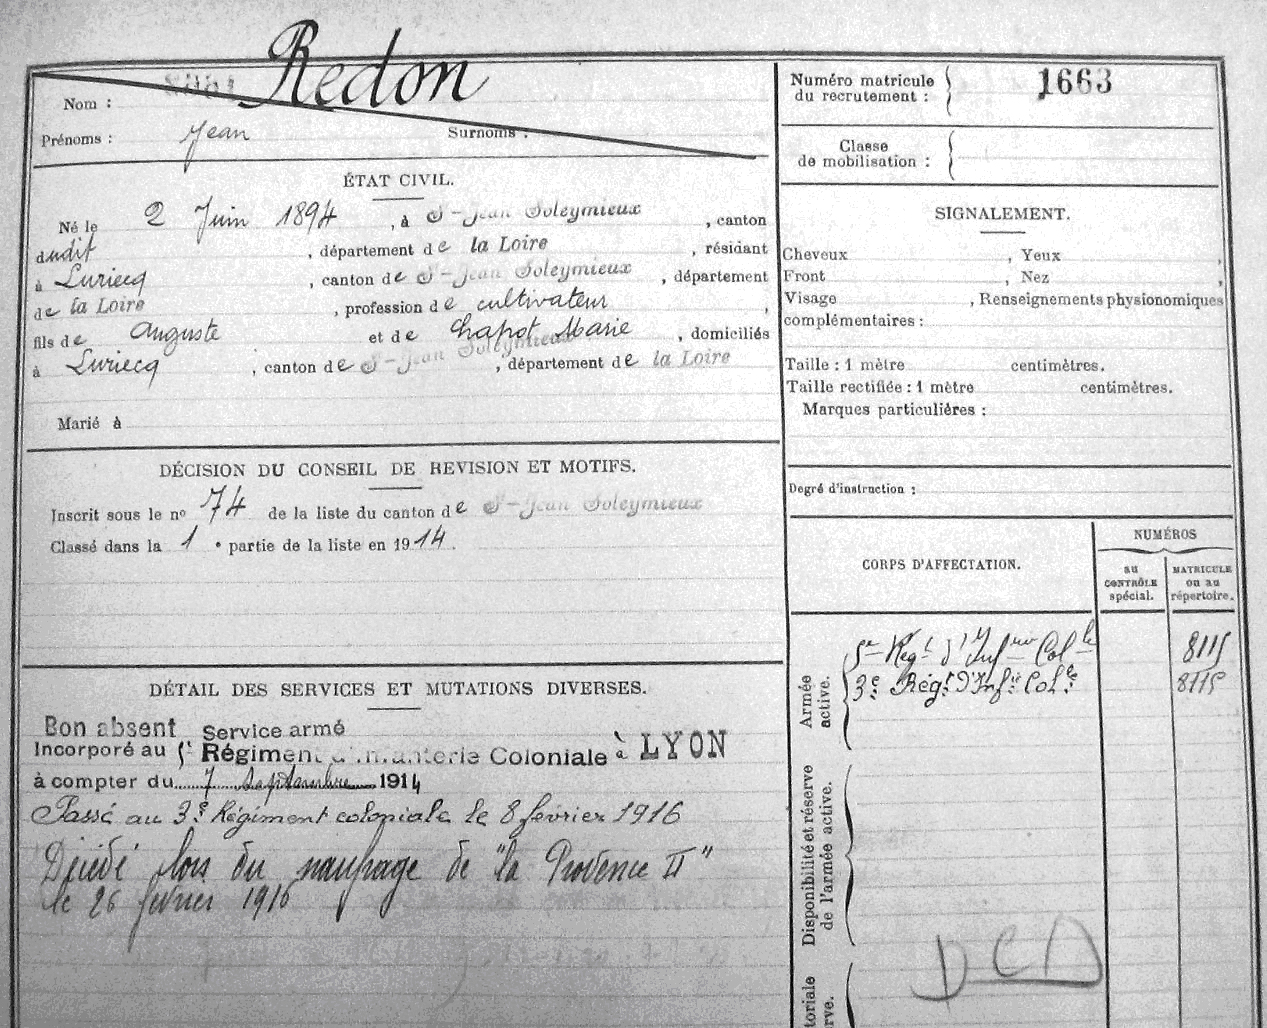 Redon
Nom :
Prénoms : Jean Surnoms :
Numéro matricule du recrutement : 1663
Classe de mobilisation :
ÉTAT CIVIL.
Né le 2 Juin 1894, à St-Jean Soleymieux, canton
dudit, département de la Loire, résidant
à Luriecq, canton de St-Jean Soleymieux, département
de la Loire, profession de cultivateur,
fils de Auguste et de Chapot Marie, domiciliés
à Luriecq, canton de St-Jean Soleymieux, département de la Loire
Marié à
SIGNALEMENT.
Cheveux , Yeux ,
Front , Nez ,
Visage , Renseignements physionomiques
complémentaires :
Taille : 1 mètre centimètres.
Taille rectifiée : 1 mètre centimètres.
Marques particulières :
Degré d'instruction :
DÉCISION DU CONSEIL DE REVISION ET MOTIFS.
Inscrit sous le no 74 de la liste du canton de St-Jean Soleymieux
Classé dans la 1e partie de la liste en 1914.
DÉTAIL DES SERVICES ET MUTATIONS DIVERSES.
Bon absent Service armé
Incorporé au 5e Régiment d'Infanterie Coloniale à LYON
à compter du 7 septembre 1914
Passé au 3e Régiment coloniale le 8 février 1916
Décédé lors du naufrage de "la Provence II"
le 26 février 1916
CORPS D'AFFECTATION.
NUMÉROS
au CONTRÔLE spécial.
MATRICULE ou au répertoire.
Armée active.
5e Régt d'Infrie Colle 8115
3e Régt d'Infie Cole 8115
Disponibilité et réserve de l'armée active.
DCD
toriale
rve.